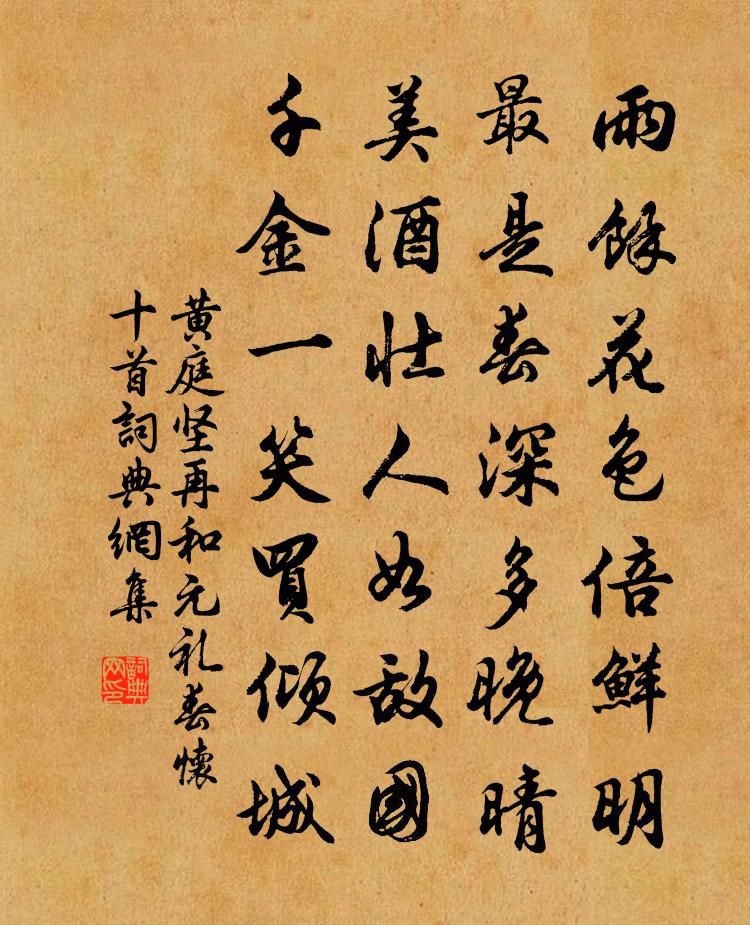 雨餘花色倍鮮明
最是春深多晚晴
美酒壮人如敌國
千金一笑買傾城
黄庭坚再和元礼春懷
十首詞典網集
詞典网印